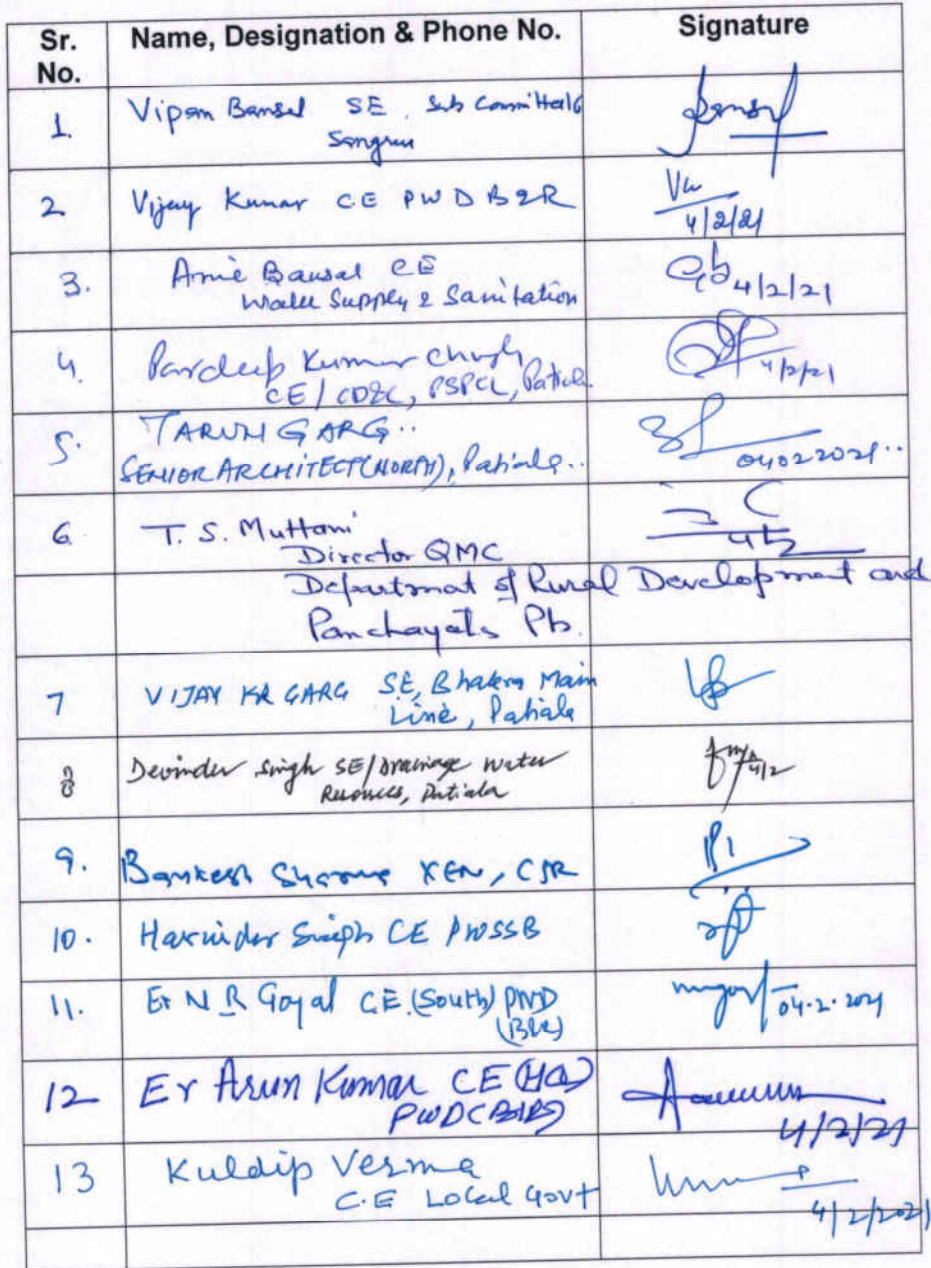 Sr. No.
Name, Designation & Phone No.
Signature
1.
Vipan Bansal SE, Sub Committee
Sangrur
2
Vijay Kumar CE PWD B&R
4/2/21
3.
Bansal CE
Water Supply & Sanitation
4/2/21
4.
Pardeep Kumar
CE/ PSPCL, Patiala
4/2/21
5.
TARUN GARG..
SENIOR ARCHITECT(NORTH), Patiala..
04022021..
6
T. S. Muttani
Director QMC
4/2
Department of Rural Development and
Panchayats Pb.
7
VIJAY KR GARG SE, Bhakra Main
Line, Patiala
8
Devinder Singh SE/Drainage water
Resources, Patiala
4/2
9.
Sharma XEN, CSR
10.
Harinder Singh CE PWSSB
11.
Er N R Goyal CE.(South) PWD
(B&R)
04.2.2021
12
Er Arun Kumar CE (HQ)
PWD(B&R)
4/2/21
13
Kuldip Verma
C.E Local Govt
4/2/2021